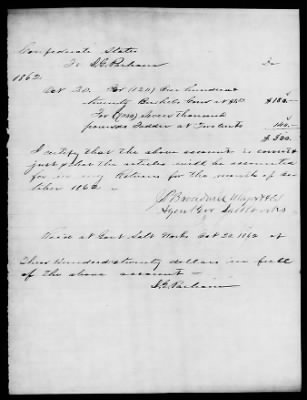 Confederate States
To S.G. Parham Dr
1862
Oct 30. For (120) One hundred
twenty Bushels Corn at $1.50 $ 180.00
For (7000) Seven thousand
pounds Fodder at Two cents 140.00
$ 320.
I certify that the above account is correct
just & that the articles will be accounted
for in my Returns for the month of Oc-
tober 1862
Agent Gov Salt Works
Rec'd at Govt Salt Works Oct 30 1862
Three Hundred & twenty dollars in full
of the above account
S.G. Parham